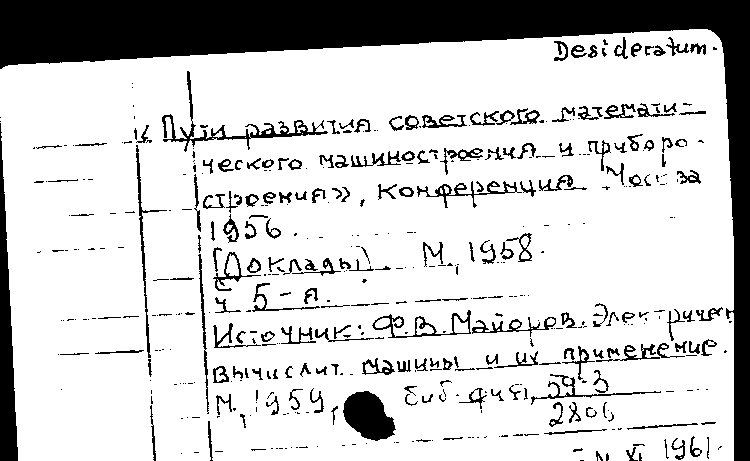 Desideratum.
« Пути развития советского математи-
ческого машиностроения и приборо-
строения», конференция Москва
1956.
[Доклады]. М., 1958.
ч 5-я.
Источник: Ф.В. Майоров. Электрическ
вычислит. машины и их применение.
М., 1959, библ-фия, 59-3
2806
XI 1961.